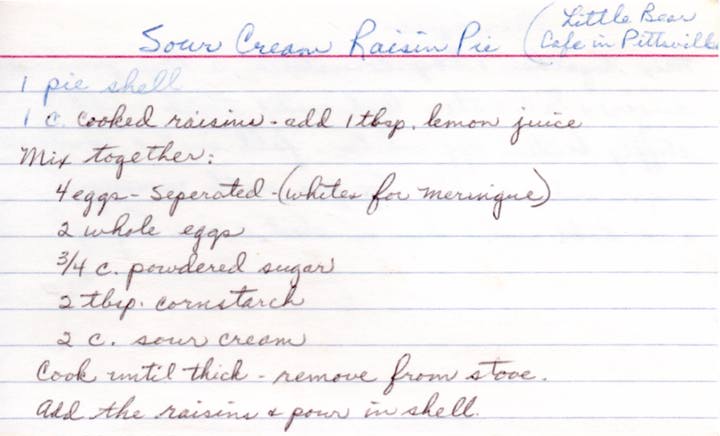 Sour Cream Raisin Pie (Little Bear
Cafe in Pittsville
1 pie shell
1 c. cooked raisins - add 1 tbsp. lemon juice
Mix together:
4 eggs - seperated - (whites for meringue)
2 whole eggs
3/4 c. powdered sugar
2 tbsp. cornstarch
2 c. sour cream
Cook until thick - remove from stove.
Add the raisins & pour in shell.